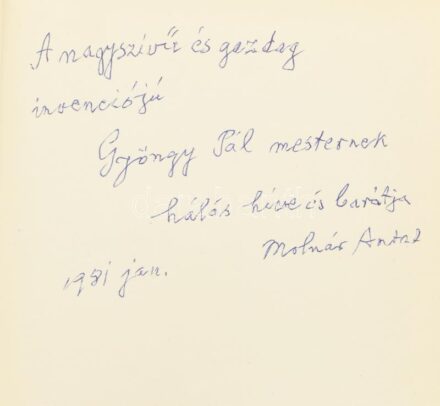 A nagyszivű és gazdag
invenciójú
Gyöngy Pál mesternek
hálás híve és barátja
Molnár Antal
1981 jan.